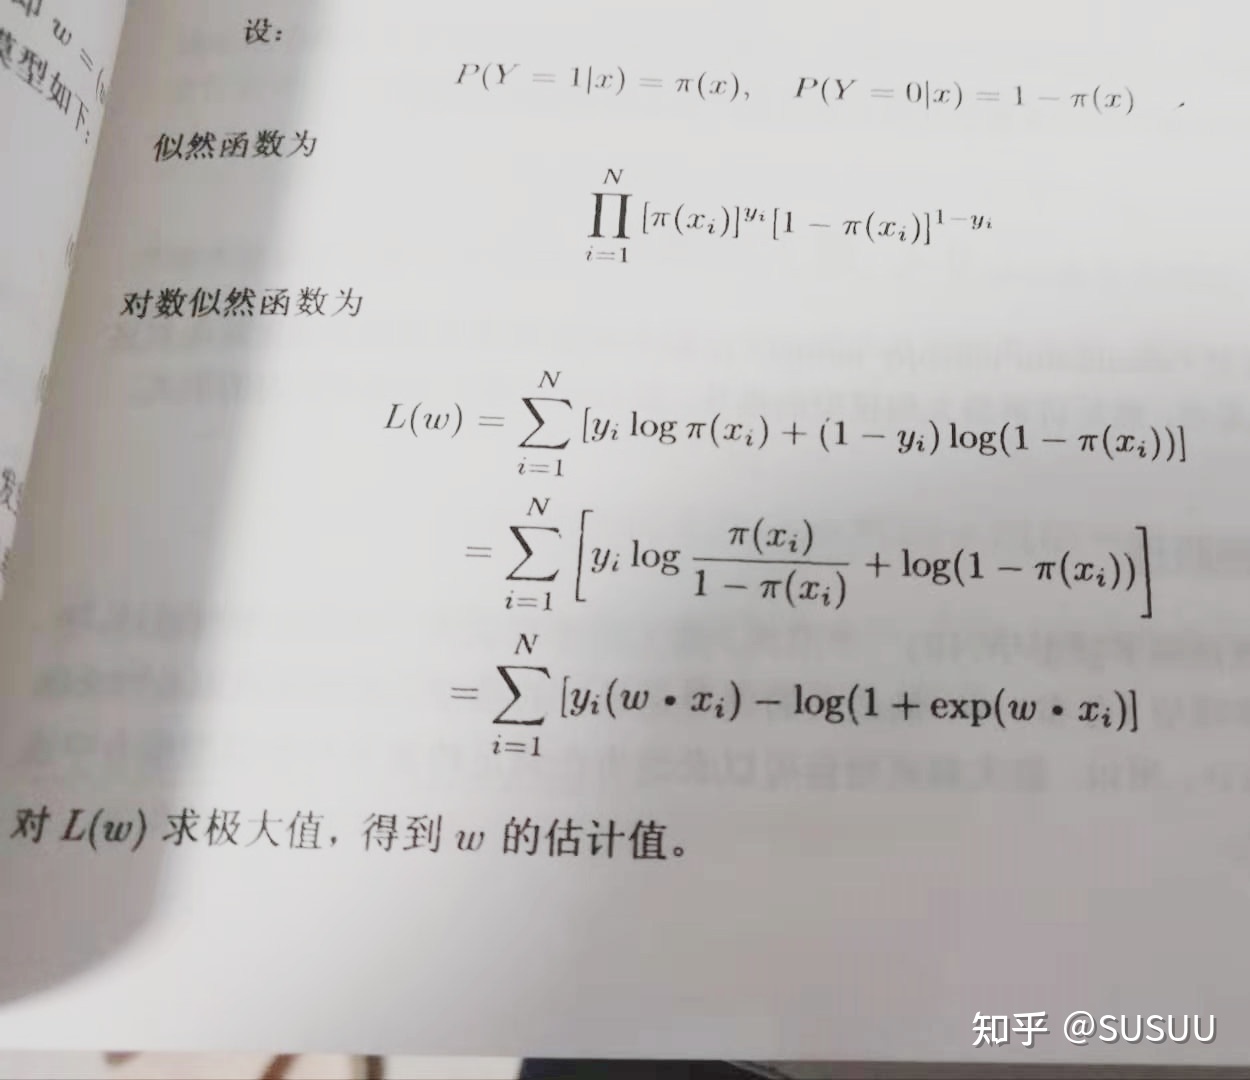 即 w =
模型如下:
设:
P(Y = 1|x) = π(x), P(Y = 0|x) = 1 − π(x)
似然函数为
∏_{i=1}^{N} [π(x_i)]^{y_i} [1 − π(x_i)]^{1−y_i}
对数似然函数为
L(w) = ∑_{i=1}^{N} [y_i log π(x_i) + (1 − y_i) log(1 − π(x_i))]
= ∑_{i=1}^{N} [y_i log \frac{π(x_i)}{1 − π(x_i)} + log(1 − π(x_i))]
= ∑_{i=1}^{N} [y_i(w • x_i) − log(1 + exp(w • x_i)]
对 L(w) 求极大值，得到 w 的估计值。
知乎 @SUSUU